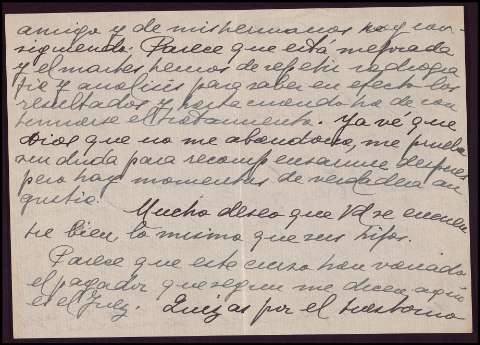 amigo y de mis hermanos voy con-
siguiendo. Parece que está mejorada
y el martes hemos de repetir radiogra
fia y analisis para saber en efecto los
resultados y hasta cuando ha de con
tinuarse el tratamiento. Ya vé que
Dios que no me abandona, me prueba
sin duda para recompensarme despues
pero hay momentos de verdadera an
gustia. Mucho deseo que Vd se encuen
tre bien, lo mismo que sus hijos.
Parece que este curso han variado
el pagador que segun me dicen aqui
es el Juez. Quizas por el trastorno